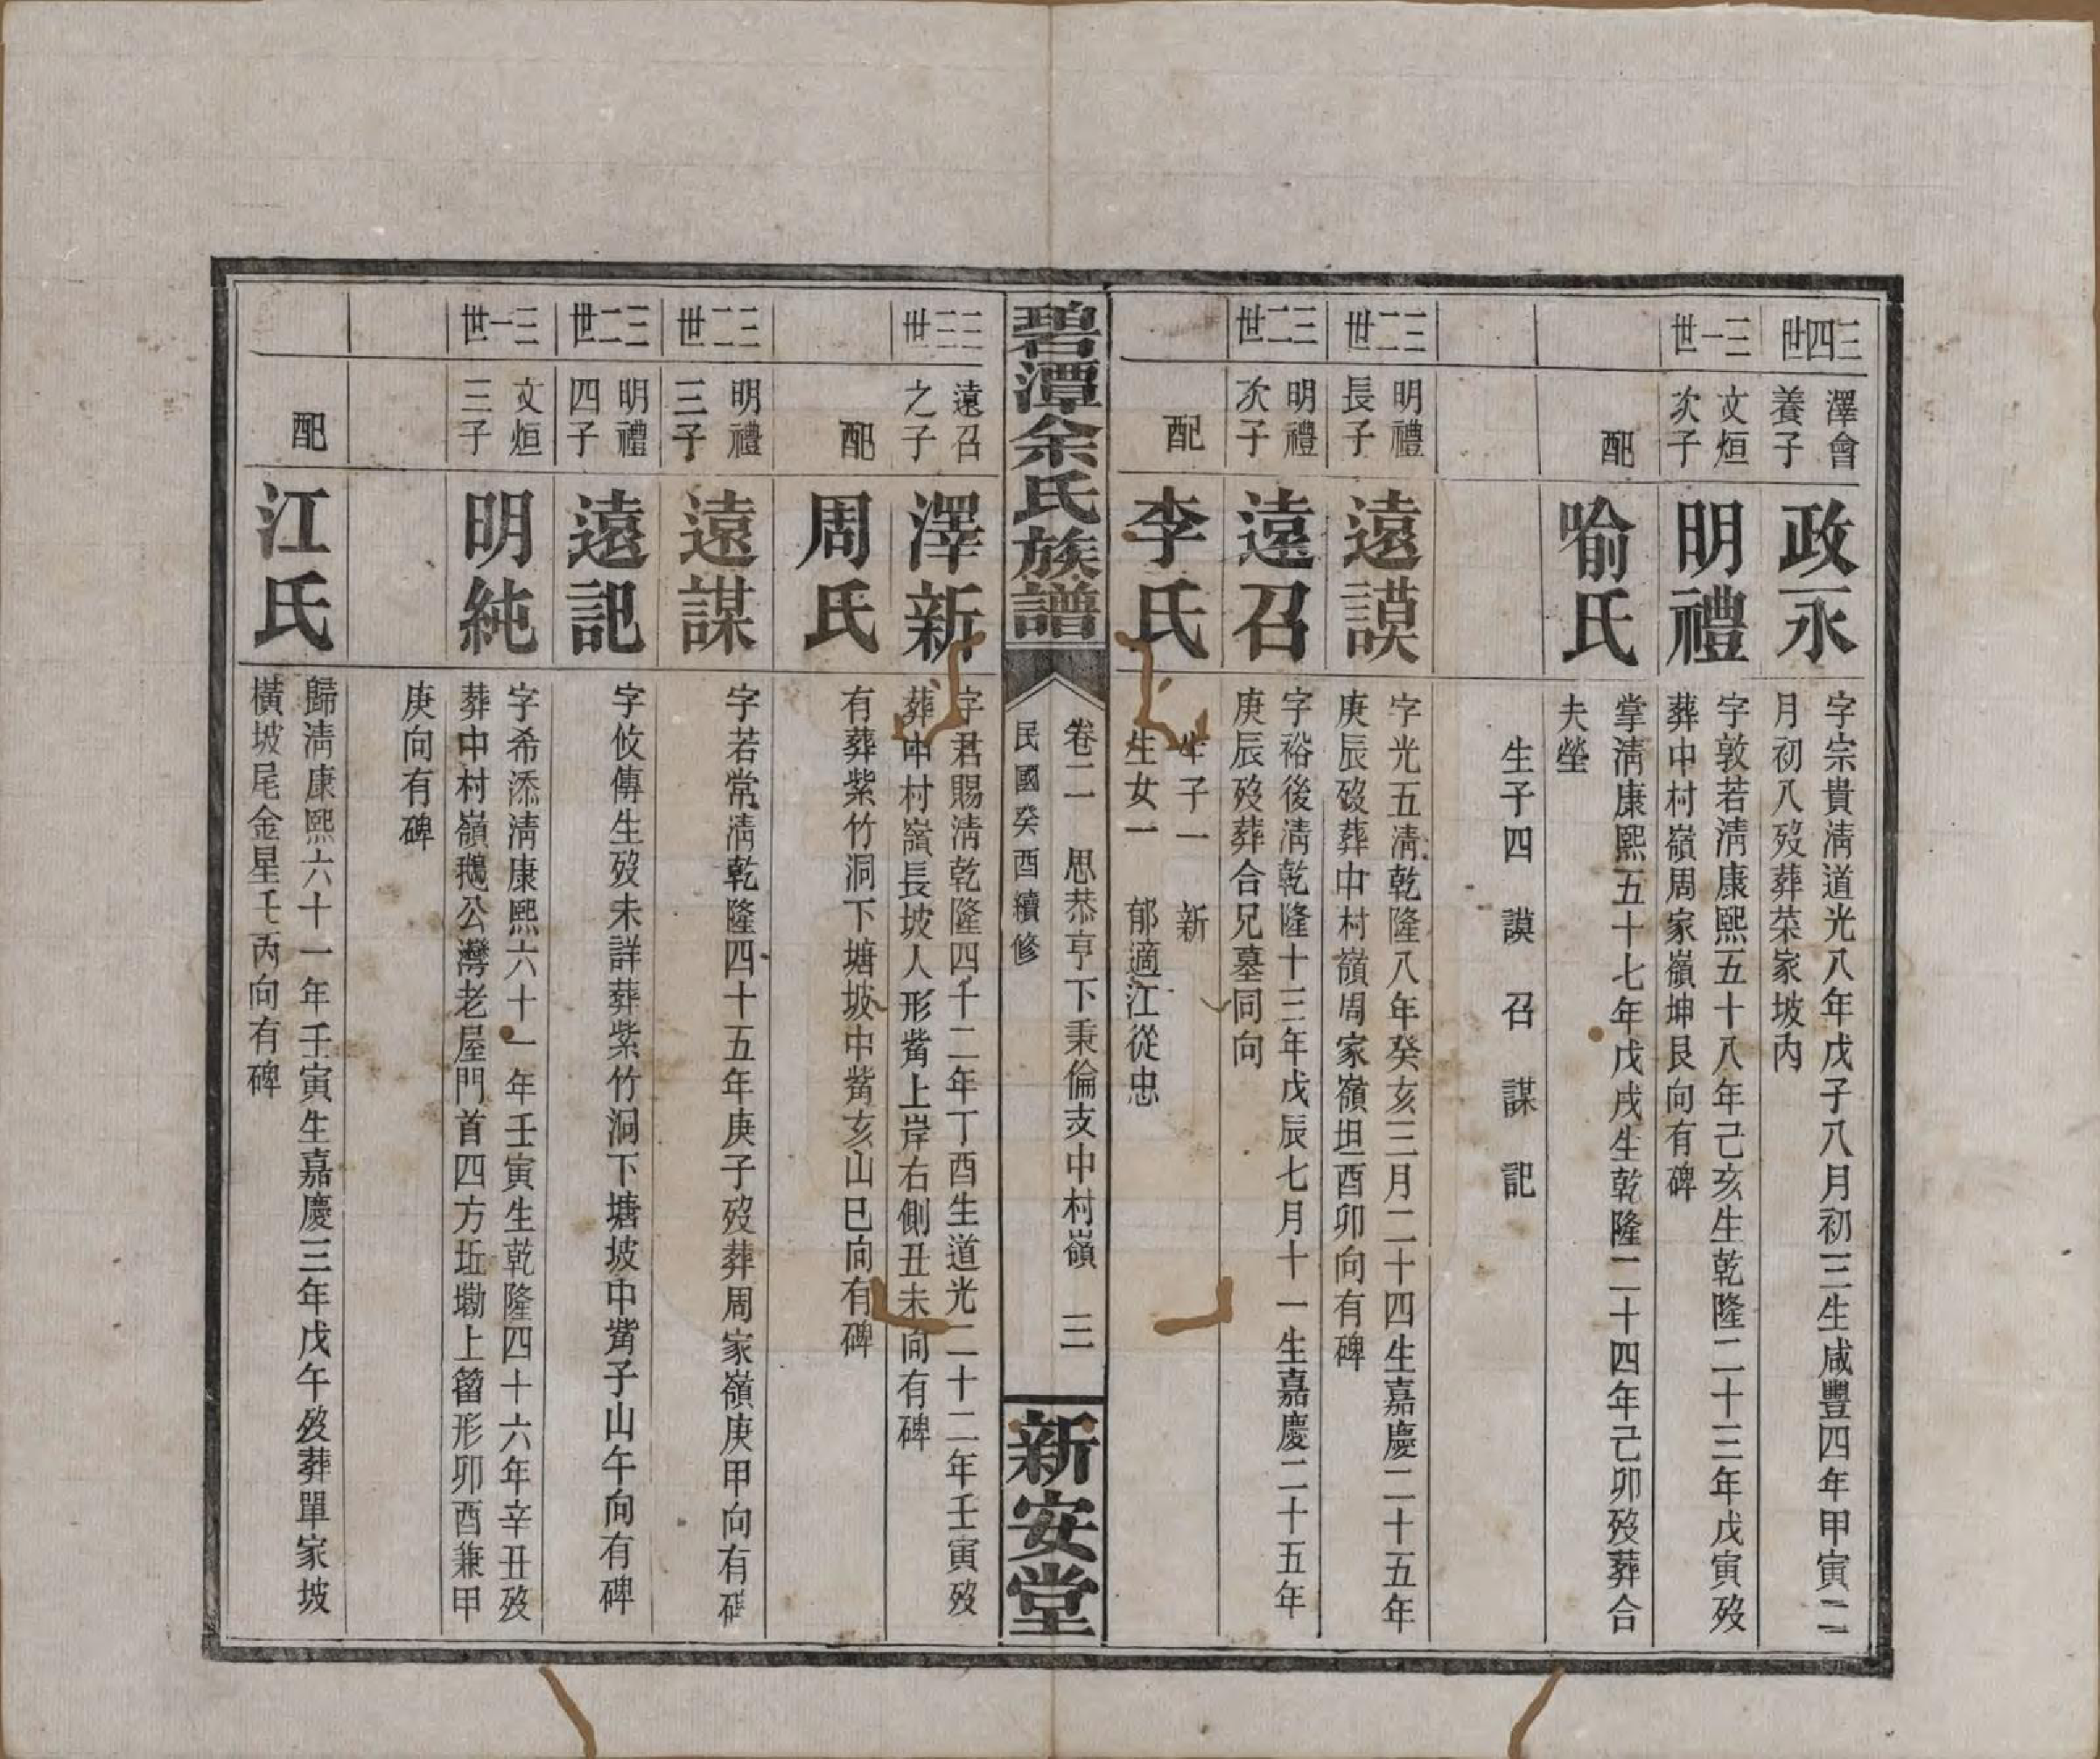 三四世
澤會
養子
政永
字宗貴淸道光八年戊子八月初三生咸豐四年甲寅二
月初八歿葬菜家坡內
三一世
文烜
次子
明禮
字敦若淸康熙五十八年己亥生乾隆二十三年戊寅歿
葬中村嶺周家嶺坤艮向有碑
配
喻氏
掌淸康熙五十七年戊戌生乾隆二十四年己卯歿葬合
夫塋
生子四 謨 召 謀 記
三二世
明禮
長子
遠謨
字光五淸乾隆八年癸亥三月二十四生嘉慶二十五年
庚辰歿葬中村嶺周家嶺坦酉卯向有碑
三二世
明禮
次子
遠召
字裕後淸乾隆十三年戊辰七月十一生嘉慶二十五年
庚辰歿葬合兄墓同向
配
李氏
生子一 新
生女一 郁適江從忠
碧潭余氏族譜
卷二 思恭亨下秉倫支中村嶺 三
民國癸酉續修
新安堂
三三世
遠召
之子
澤新
字君賜淸乾隆四十二年丁酉生道光二十二年壬寅歿
葬中村嶺長坡人形觜上岸右側丑未向有碑
配
周氏
有葬紫竹洞下塘坡中觜亥山巳向有碑
三二世
明禮
三子
遠謀
字若常淸乾隆四十五年庚子歿葬周家嶺庚甲向有碑
三二世
明禮
四子
遠記
字攸傳生歿未詳葬紫竹洞下塘坡中觜子山午向有碑
三一世
文烜
三子
明純
字希添淸康熙六十一年壬寅生乾隆四十六年辛丑歿
葬中村嶺鵝公灣老屋門首四方坵墈上簹形卯酉兼甲
庚向有碑
配
江氏
歸淸康熙六十一年壬寅生嘉慶三年戊午歿葬單家坡
橫坡尾金星壬丙向有碑